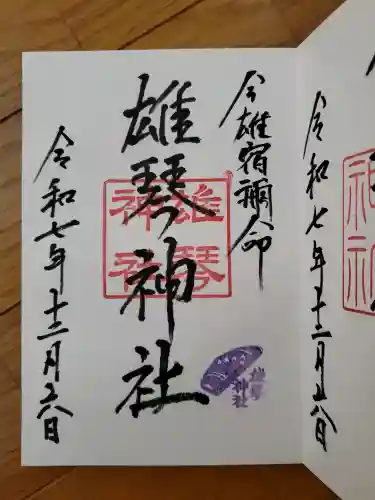 今雄宿禰命
雄琴神社
雄琴神社
雄琴神社
令和七年十二月二八日
令和七年十二月二八日